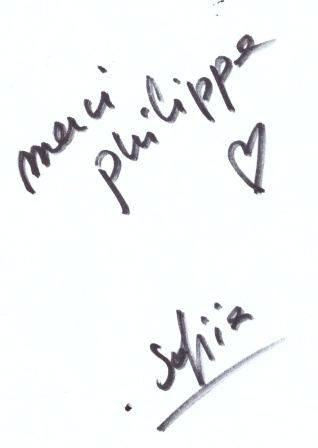 merci
philippe
Sofiia